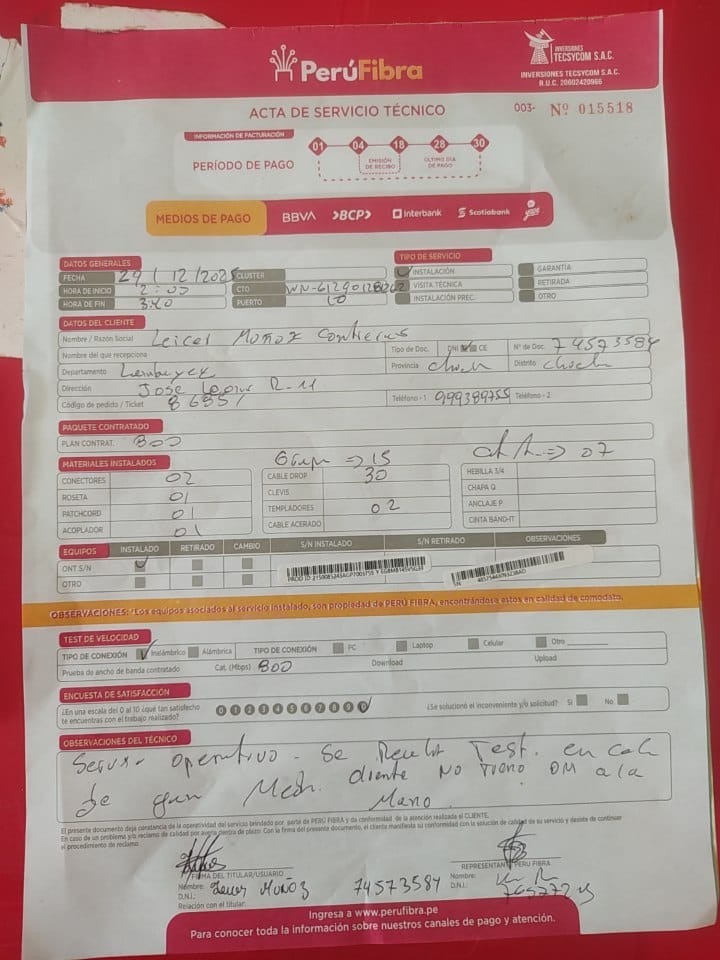 PerúFibra
INVERSIONES
TECSYCOM S.A.C.
INVERSIONES TECSYCOM S.A.C.
R.U.C. 20602420966
ACTA DE SERVICIO TÉCNICO
003- Nº 015518
INFORMACIÓN DE FACTURACIÓN
PERÍODO DE PAGO
01 04 18 28 30
EMISIÓN DE RECIBO
ÚLTIMO DÍA DE PAGO
MEDIOS DE PAGO BBVA BCP Interbank Scotiabank yape
DATOS GENERALES TIPO DE SERVICIO
FECHA 29/12/2025 CLUSTER INSTALACIÓN GARANTÍA
HORA DE INICIO 2:00 CTO VISITA TÉCNICA RETIRADA
HORA DE FIN 3:40 PUERTO 10 INSTALACIÓN PREC. OTRO
DATOS DEL CLIENTE
Nombre / Razón Social Leicer Muñoz Contreras
Nombre del que recepciona Tipo de Doc. DNI CE Nº de Doc. 74573584
Departamento Lambayex Provincia Distrito
Dirección José Leonar R-11
Código de pedido / Ticket 86351 Teléfono - 1 999389755 Teléfono - 2
PAQUETE CONTRATADO
PLAN CONTRAT. 800
MATERIALES INSTALADOS => 15 => 07
CONECTORES 02 CABLE DROP 30 HEBILLA 3/4
ROSETA 01 CLEVIS CHAPA Q
PATCHCORD 01 TEMPLADORES 02 ANCLAJE P
ACOPLADOR 01 CABLE ACERADO CINTA BAND-IT
EQUIPOS INSTALADO RETIRADO CAMBIO S/N INSTALADO S/N RETIRADO OBSERVACIONES
ONT S/N
OTRO
OBSERVACIONES: *Los equipos asociados al servicio instalado, son propiedad de PERÚ FIBRA, encontrándose estos en calidad de comodato.
TEST DE VELOCIDAD
TIPO DE CONEXIÓN Inalámbrico Alámbrica TIPO DE CONEXIÓN PC Laptop Celular Otro
Prueba de ancho de banda contratado Cat. (Mbps) 800 Download Upload
ENCUESTA DE SATISFACCIÓN
¿En una escala del 0 al 10 ¿qué tan satisfecho te encuentras con el trabajo realizado? 0 1 2 3 4 5 6 7 8 9 10 ¿Se solucionó el inconveniente y/o solicitud? Si No
OBSERVACIONES DEL TÉCNICO
operativo - Se Test. en
de Medi. cliente No
Mano.
El presente documento deja constancia de la operatividad del servicio brindado por parte de PERÚ FIBRA y da conformidad de la atención realizada al CLIENTE.
En caso de un problema y/o reclamo de calidad por avería dentro de plazo. Con la firma del presente documento, el cliente manifiesta su conformidad con la solución de calidad de su servicio y desiste de continuar
el procedimiento de reclamo.
FIRMA DEL TITULAR/USUARIO REPRESENTANTE PERÚ FIBRA
Nombre: Leicer Muñoz 74573584 Nombre:
D.N.I.: D.N.I.:
Relación con el titular:
Ingresa a www.perufibra.pe
Para conocer toda la información sobre nuestros canales de pago y atención.